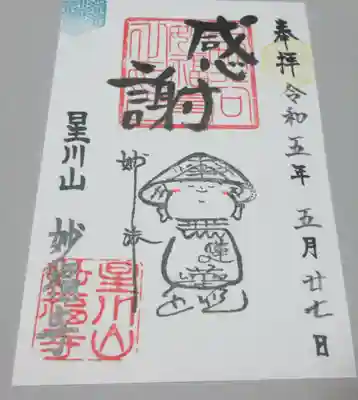 奉拝 令和五年 五月廿七日
感謝
妙法
蓮
星川山 妙福寺
星川山
妙福寺